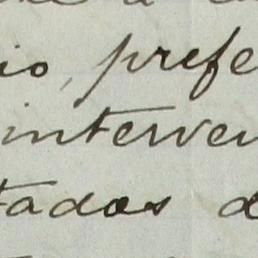 io, prefe
interven
tados d